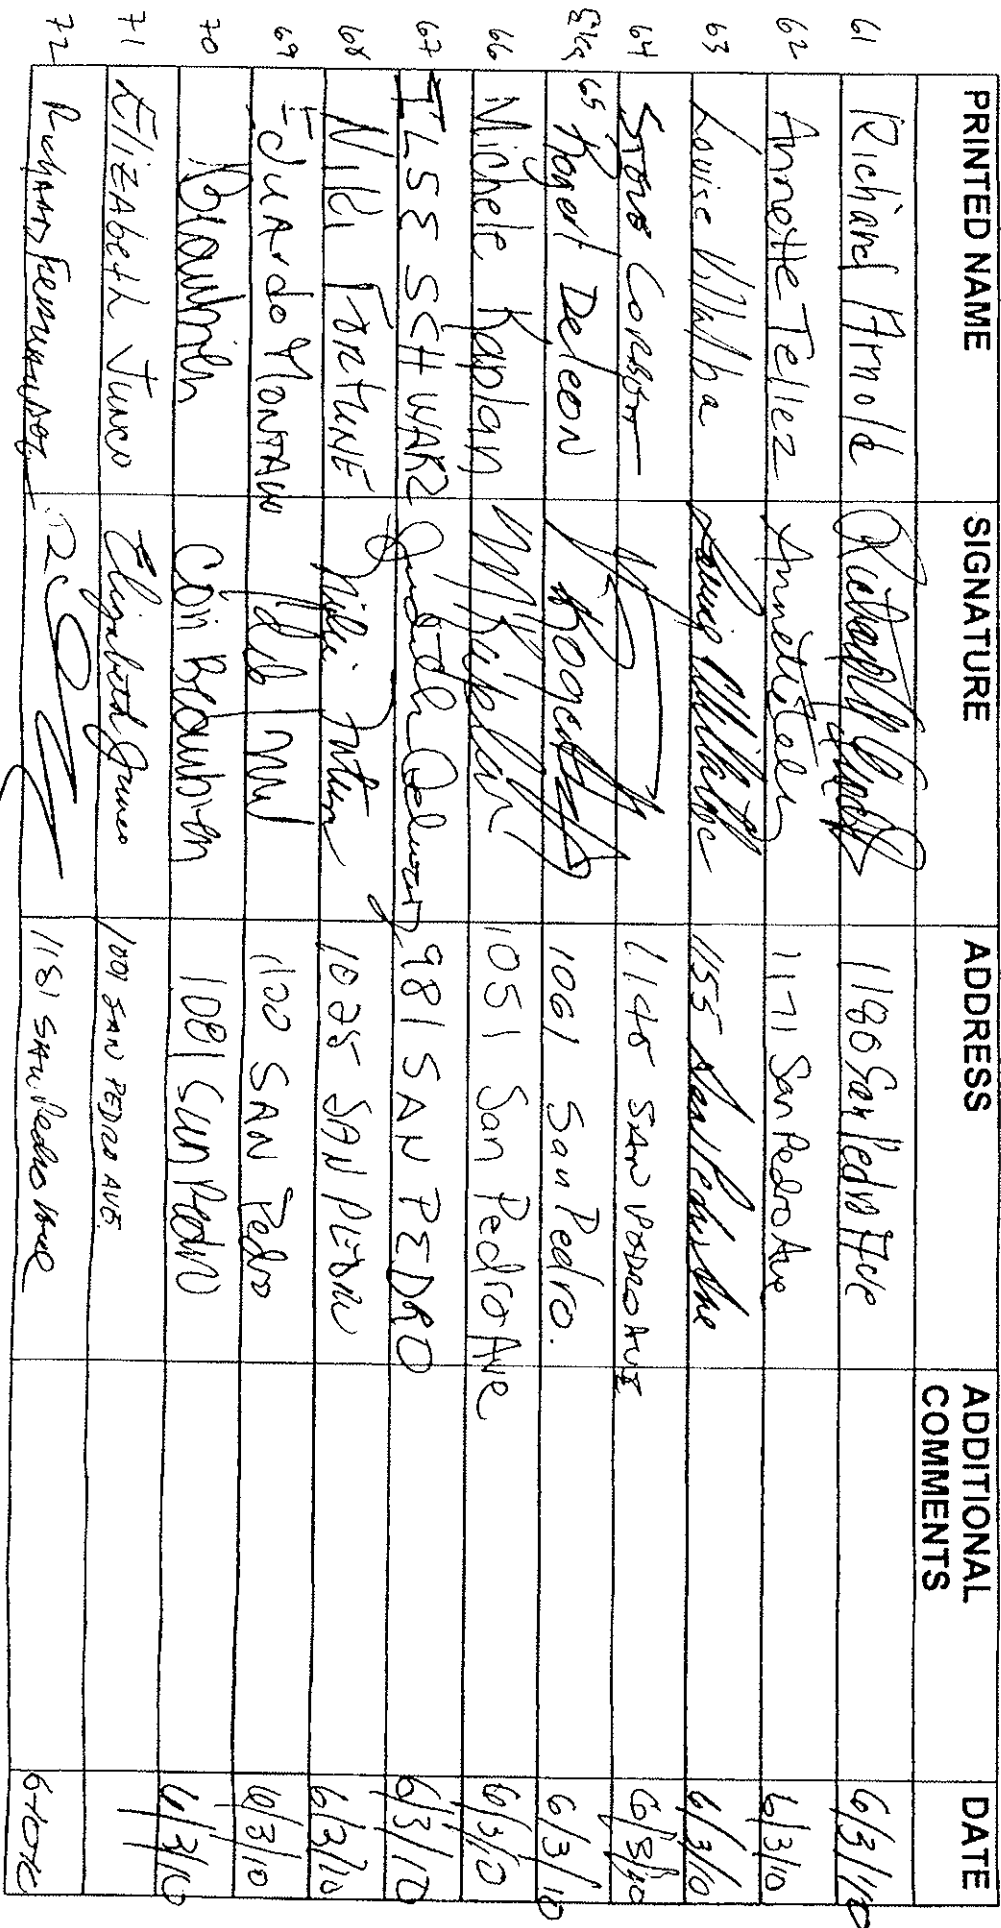 PRINTED NAME SIGNATURE ADDRESS ADDITIONAL COMMENTS DATE
61 Richard Arnold 1186 San Pedro Ave 6/3/10
62 Annette Tellez 1171 San Pedro Ave 6/3/10
63 Louise Villalba Louise Villalba 1155 San Pedro Ave 6/3/10
64 Steve Corbett 1145 SAN PEDRO AVE 6/3/10
65 Roger DeLeon 1061 San Pedro. 6/3/10
66 Michele Kaplan 1051 San Pedro Ave 6/3/10
67 ILSE SCHWARZ 981 SAN PEDRO 6/3/10
68 Niki FORTUNE 1025 SAN PEDRO 6/3/10
69 EDUARDO MONTANO 1100 SAN Pedro 6/3/10
70 Beaubien Cori Beaubien 1081 San Pedro 6/3/10
71 Elizabeth Junco Elizabeth Junco 1001 SAN PEDRO AVE.
72 Richard Fernandez 1181 San Pedro Ave